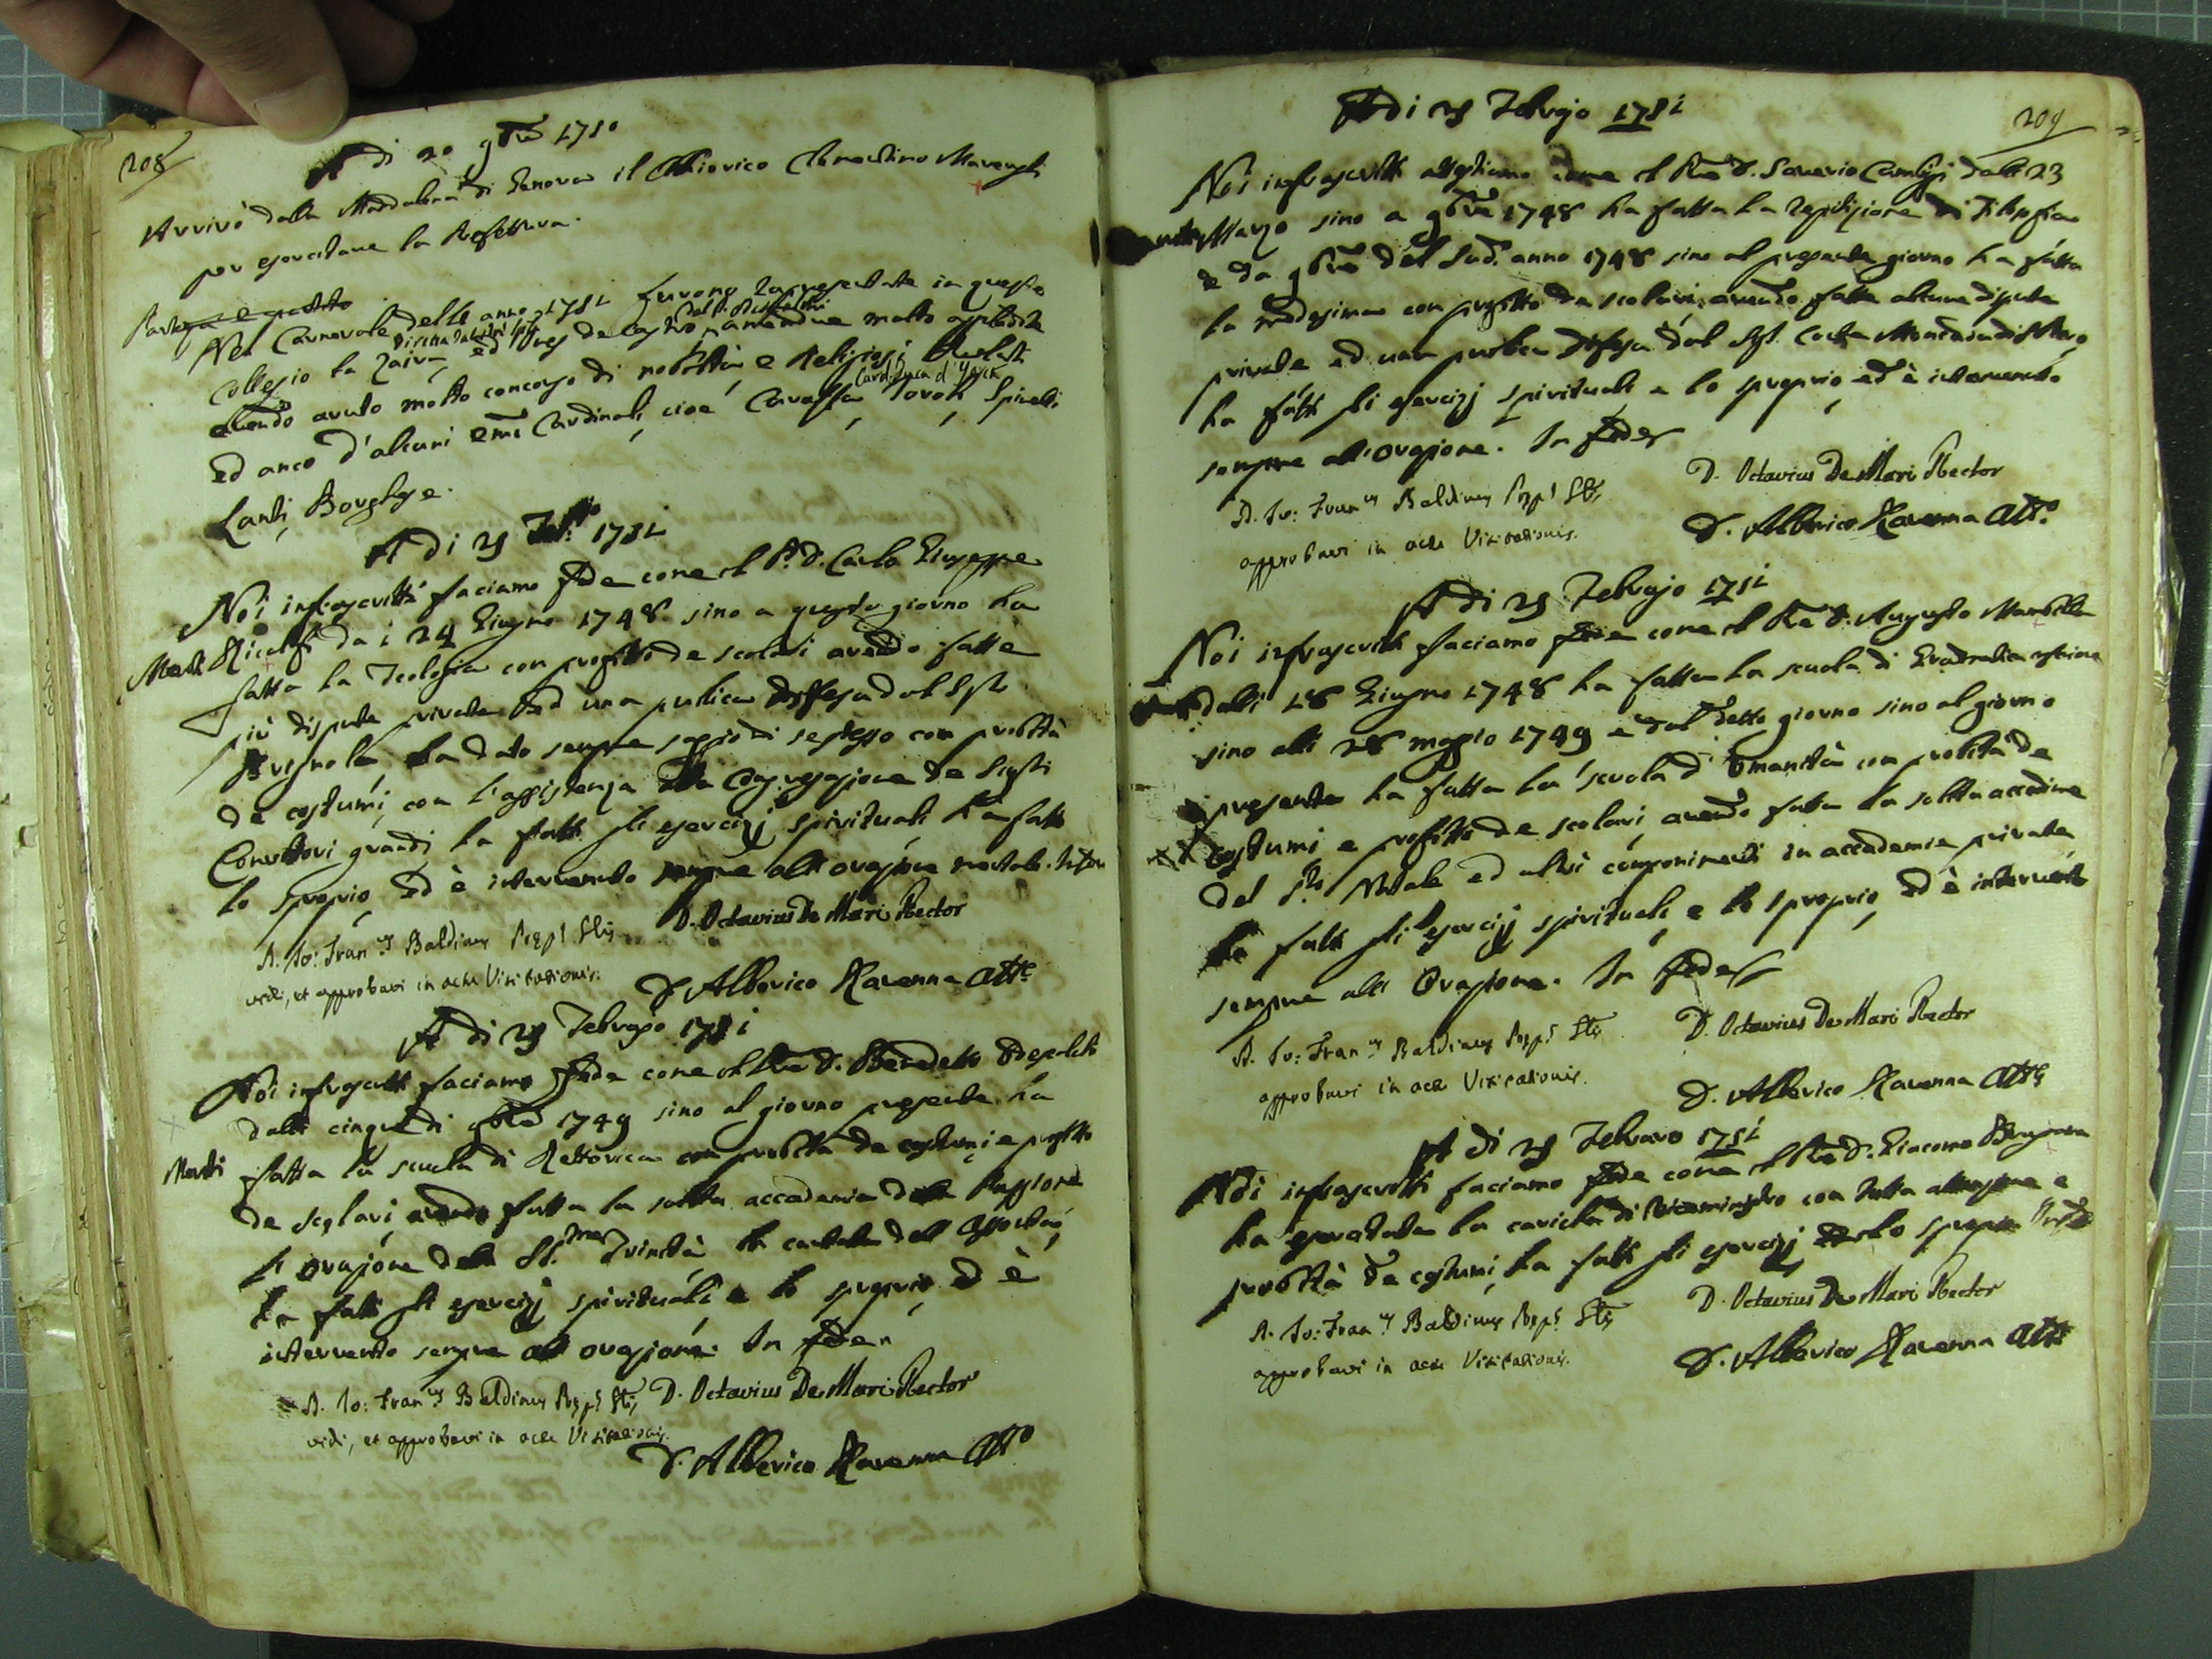 208
A di 20 9bre 1750
Arrivò dalla Maddalena di Genova il Chierico Clementino
per esercitare la Prefettura.
Nel Carnevale dell'anno 1751 furono rappresentate in questo
Collegio la Zaira, ed Ines de Castro, amendue molto applaudite
avendo avuto molto concorso di nobiltà e Religiosi
Card. Duca d'Yorck
ed anco d'alcuni Emi Cardinali, cioè Spinelli
Lanti, Borghese.
A di 25 1751
Noi infrascritti facciamo fede come il P. D. Carlo Giuseppe
da i 24 Giugno 1748 sino a questo giorno ha
fatta la Teologia con profitto de scolari avendo fatte
più dispute private ed una publica difesa dal Sigr
Brignole ha dato sempre saggio di se stesso con probità
de costumi, con l'assistenza alla Congregazione de Sigri
Convittori grandi ha fatti gli esercizj spirituali ha fatto
lo sproprio, ed è intervenuto sempre all'orazione mentale. In fede
D. Octavius De Mari Rector
D. Io: Fran.us Baldinus Prep.s Glis
vidi, et approbavi in actu Visitationis.
D. Alberico Ravenna Att.o
A di 25 Febrajo 1751
Noi infrascritti facciamo fede come il Rdo D. Benedetto
dalli cinque di 9bre 1749 sino al giorno presente ha
Meriti fatta la scuola di Rettorica con probità de costumi e profitto
de scolari, avendo fatta la solita accademia della Passione
l'orazione della SS.ma Trinità, la cantata dell'Assonta,
ha fatti gli esercizj spirituali e lo sproprio ed è
intervenuto sempre all'orazione. In fede
D. Io: Fran.us Baldinus Prep.s Glis D. Octavius De Mari Rector
vidi, et approbavi in actu Visitationis.
D. Alberico Ravenna Att.o
209
A di 25 Febrajo 1751
Noi infrascritti attestiamo come il Rdo D. Saverio dalli 23
Marzo sino a 9bre 1748 ha fatta la repetizione di Filosofia
e da 9bre del sud. anno 1748 sino al presente giorno ha fatta
la medesima con profitto de scolari, avendo fatte alcune dispute
private ed una publica difesa dal Sigr. Conte
ha fatti gli esercizj spirituali e lo sproprio, ed è intervenuto
sempre all'orazione. In fede
D. Octavius De Mari Rector
D. Io: Fran.us Baldinus Prep.s Glis
approbavi in actu Visitationis.
D. Alberico Ravenna Att.o
A di 25 Febrajo 1751
Noi infrascritti facciamo fede come il Rdo D. Augusto
dalli 18 Giugno 1748 ha fatta la scuola di Gramatica
sino alli 28 maggio 1749 e dal detto giorno sino al giorno
presente ha fatta la scuola d'Umanità con probità de
costumi e profitto de scolari, avendo fatta la solita accademia
del S.to Natale ed altri componimenti in accademie private
ha fatti gli esercizj spirituali, e lo sproprio, ed è intervenuto
sempre all'Orazione. In fede
D. Octavius De Mari Rector
D. Io: Fran.us Baldinus Prep.s Glis
approbavi in actu Visitationis.
D. Alberico Ravenna Att.o
A di 25 Febraro 1751
Noi infrascritti facciamo fede come il Rdo D. Giacomo
ha esercitata la carica di Viceministro con tutta attenzione e
probità de costumi, ha fatti gli esercizj e lo sproprio In fede
D. Octavius De Mari Rector
D. Io: Fran.us Baldinus Prep.s Glis
approbavi in actu Visitationis.
D. Alberico Ravenna Att.o